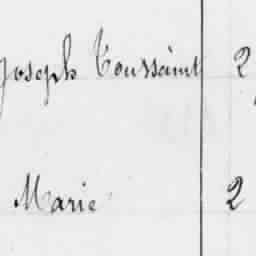 Joseph Toussaint 2
Marie 2